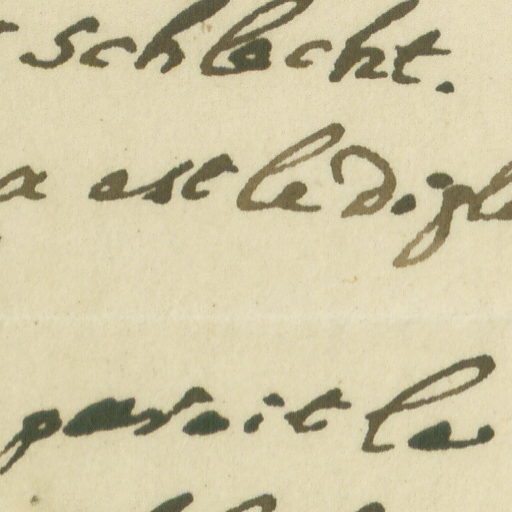 schlecht.
a est le digl
paroit la